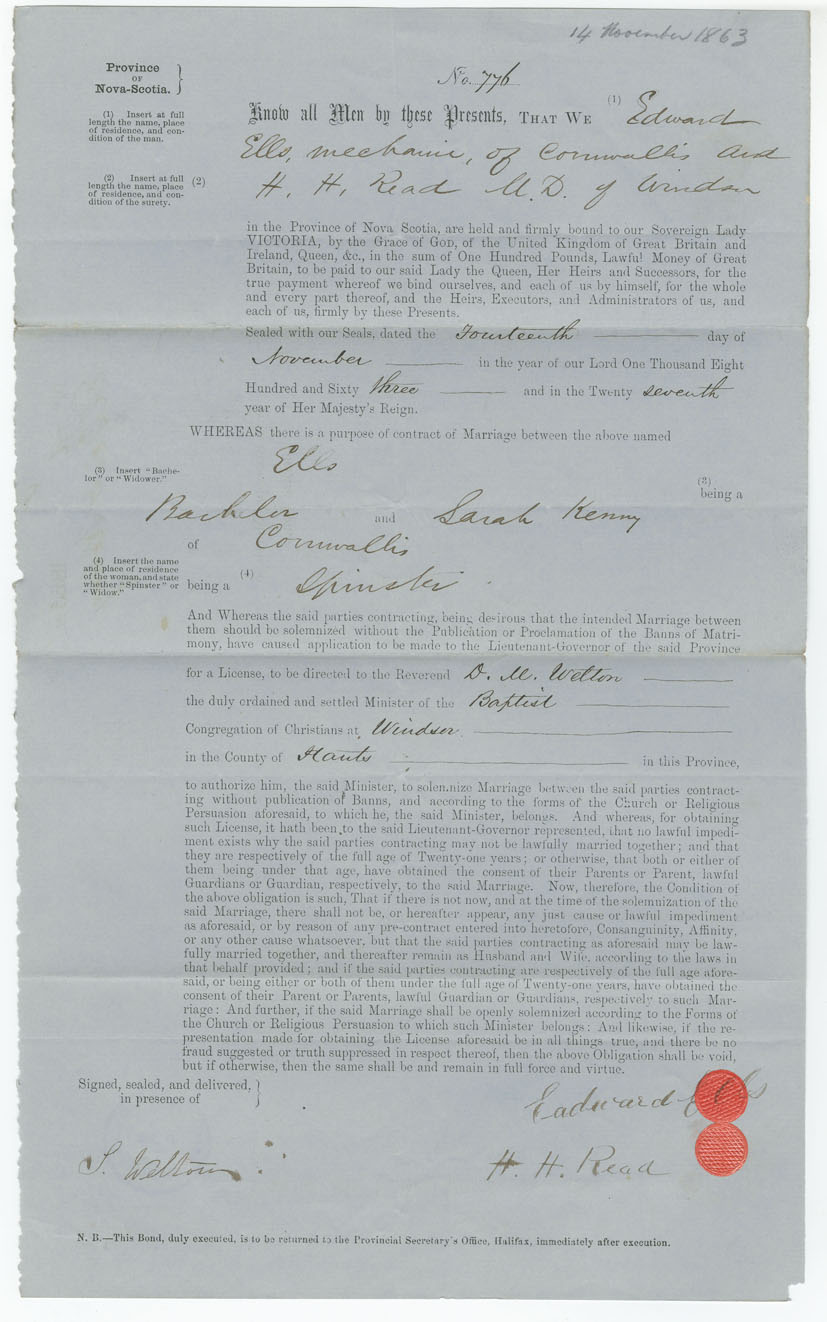 14 November 1863
Province
OF
Nova-Scotia.
No. 776
(1) Insert at full
length the name, place
of residence, and con-
dition of the man.
Know all Men by these Presents, THAT WE (1) Edward
Ells, mechanic, of Cornwallis and
(2) Insert at full
length the name, place
of residence, and con-
dition of the surety.
(2) H. H. Read M.D. of Windsor
in the Province of Nova Scotia, are held and firmly bound to our Sovereign Lady
VICTORIA, by the Grace of GOD, of the United Kingdom of Great Britain and
Ireland, Queen, &c., in the sum of One Hundred Pounds, Lawful Money of Great
Britain, to be paid to our said Lady the Queen, Her Heirs and Successors, for the
true payment whereof we bind ourselves, and each of us by himself, for the whole
and every part thereof, and the Heirs, Executors, and Administrators of us, and
each of us, firmly by these Presents.
Sealed with our Seals, dated the Fourteenth day of
November in the year of our Lord One Thousand Eight
Hundred and Sixty three and in the Twenty seventh
year of Her Majesty's Reign.
WHEREAS there is a purpose of contract of Marriage between the above named
Ells
(3) Insert "Bache-
lor" or "Widower."
(3)
being a
Bachelor and Sarah Kenny
of Cornwallis
(4) Insert the name
and place of residence
of the woman, and state
whether "Spinster" or
"Widow."
being a (4) Spinster
And Whereas the said parties contracting, being desirous that the intended Marriage between
them should be solemnized without the Publication or Proclamation of the Banns of Matri-
mony, have caused application to be made to the Lieutenant-Governor of the said Province
for a License, to be directed to the Reverend D. M. Welton
the duly ordained and settled Minister of the Baptist
Congregation of Christians at Windsor
in the County of Hants in this Province,
to authorize him, the said Minister, to solemnize Marriage between the said parties contract-
ing without publication of Banns, and according to the forms of the Church or Religious
Persuasion aforesaid, to which he, the said Minister, belongs. And whereas, for obtaining
such License, it hath been to the said Lieutenant-Governor represented, that no lawful impedi-
ment exists why the said parties contracting may not be lawfully married together; and that
they are respectively of the full age of Twenty-one years; or otherwise, that both or either of
them being under that age, have obtained the consent of their Parents or Parent, lawful
Guardians or Guardian, respectively, to the said Marriage. Now, therefore, the Condition of
the above obligation is such, That if there is not now, and at the time of the solemnization of the
said Marriage, there shall not be, or hereafter appear, any just cause or lawful impediment
as aforesaid, or by reason of any pre-contract entered into heretofore, Consanguinity, Affinity,
or any other cause whatsoever, but that the said parties contracting as aforesaid may be law-
fully married together, and thereafter remain as Husband and Wife, according to the laws in
that behalf provided; and if the said parties contracting are respectively of the full age afore-
said, or being either or both of them under the full age of Twenty-one years, have obtained the
consent of their Parent or Parents, lawful Guardian or Guardians, respectively to such Mar-
riage: And further, if the said Marriage shall be openly solemnized according to the Forms of
the Church or Religious Persuasion to which such Minister belongs: And likewise, if the re-
presentation made for obtaining the License aforesaid be in all things true, and there be no
fraud suggested or truth suppressed in respect thereof, then the above Obligation shall be void,
but if otherwise, then the same shall be and remain in full force and virtue.
Signed, sealed, and delivered,
in presence of
Eadward Ells
S. Welton
H. H. Read
N. B.—This Bond, duly executed, is to be returned to the Provincial Secretary's Office, Halifax, immediately after execution.